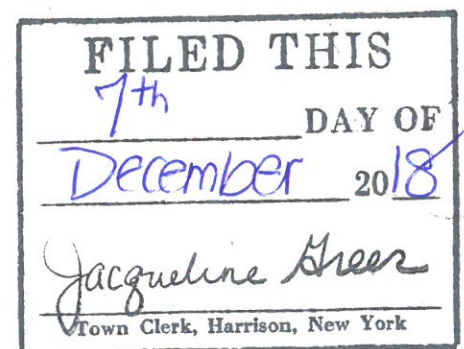 FILED THIS
7th DAY OF
December 2018
Jacqueline Greer
Town Clerk, Harrison, New York